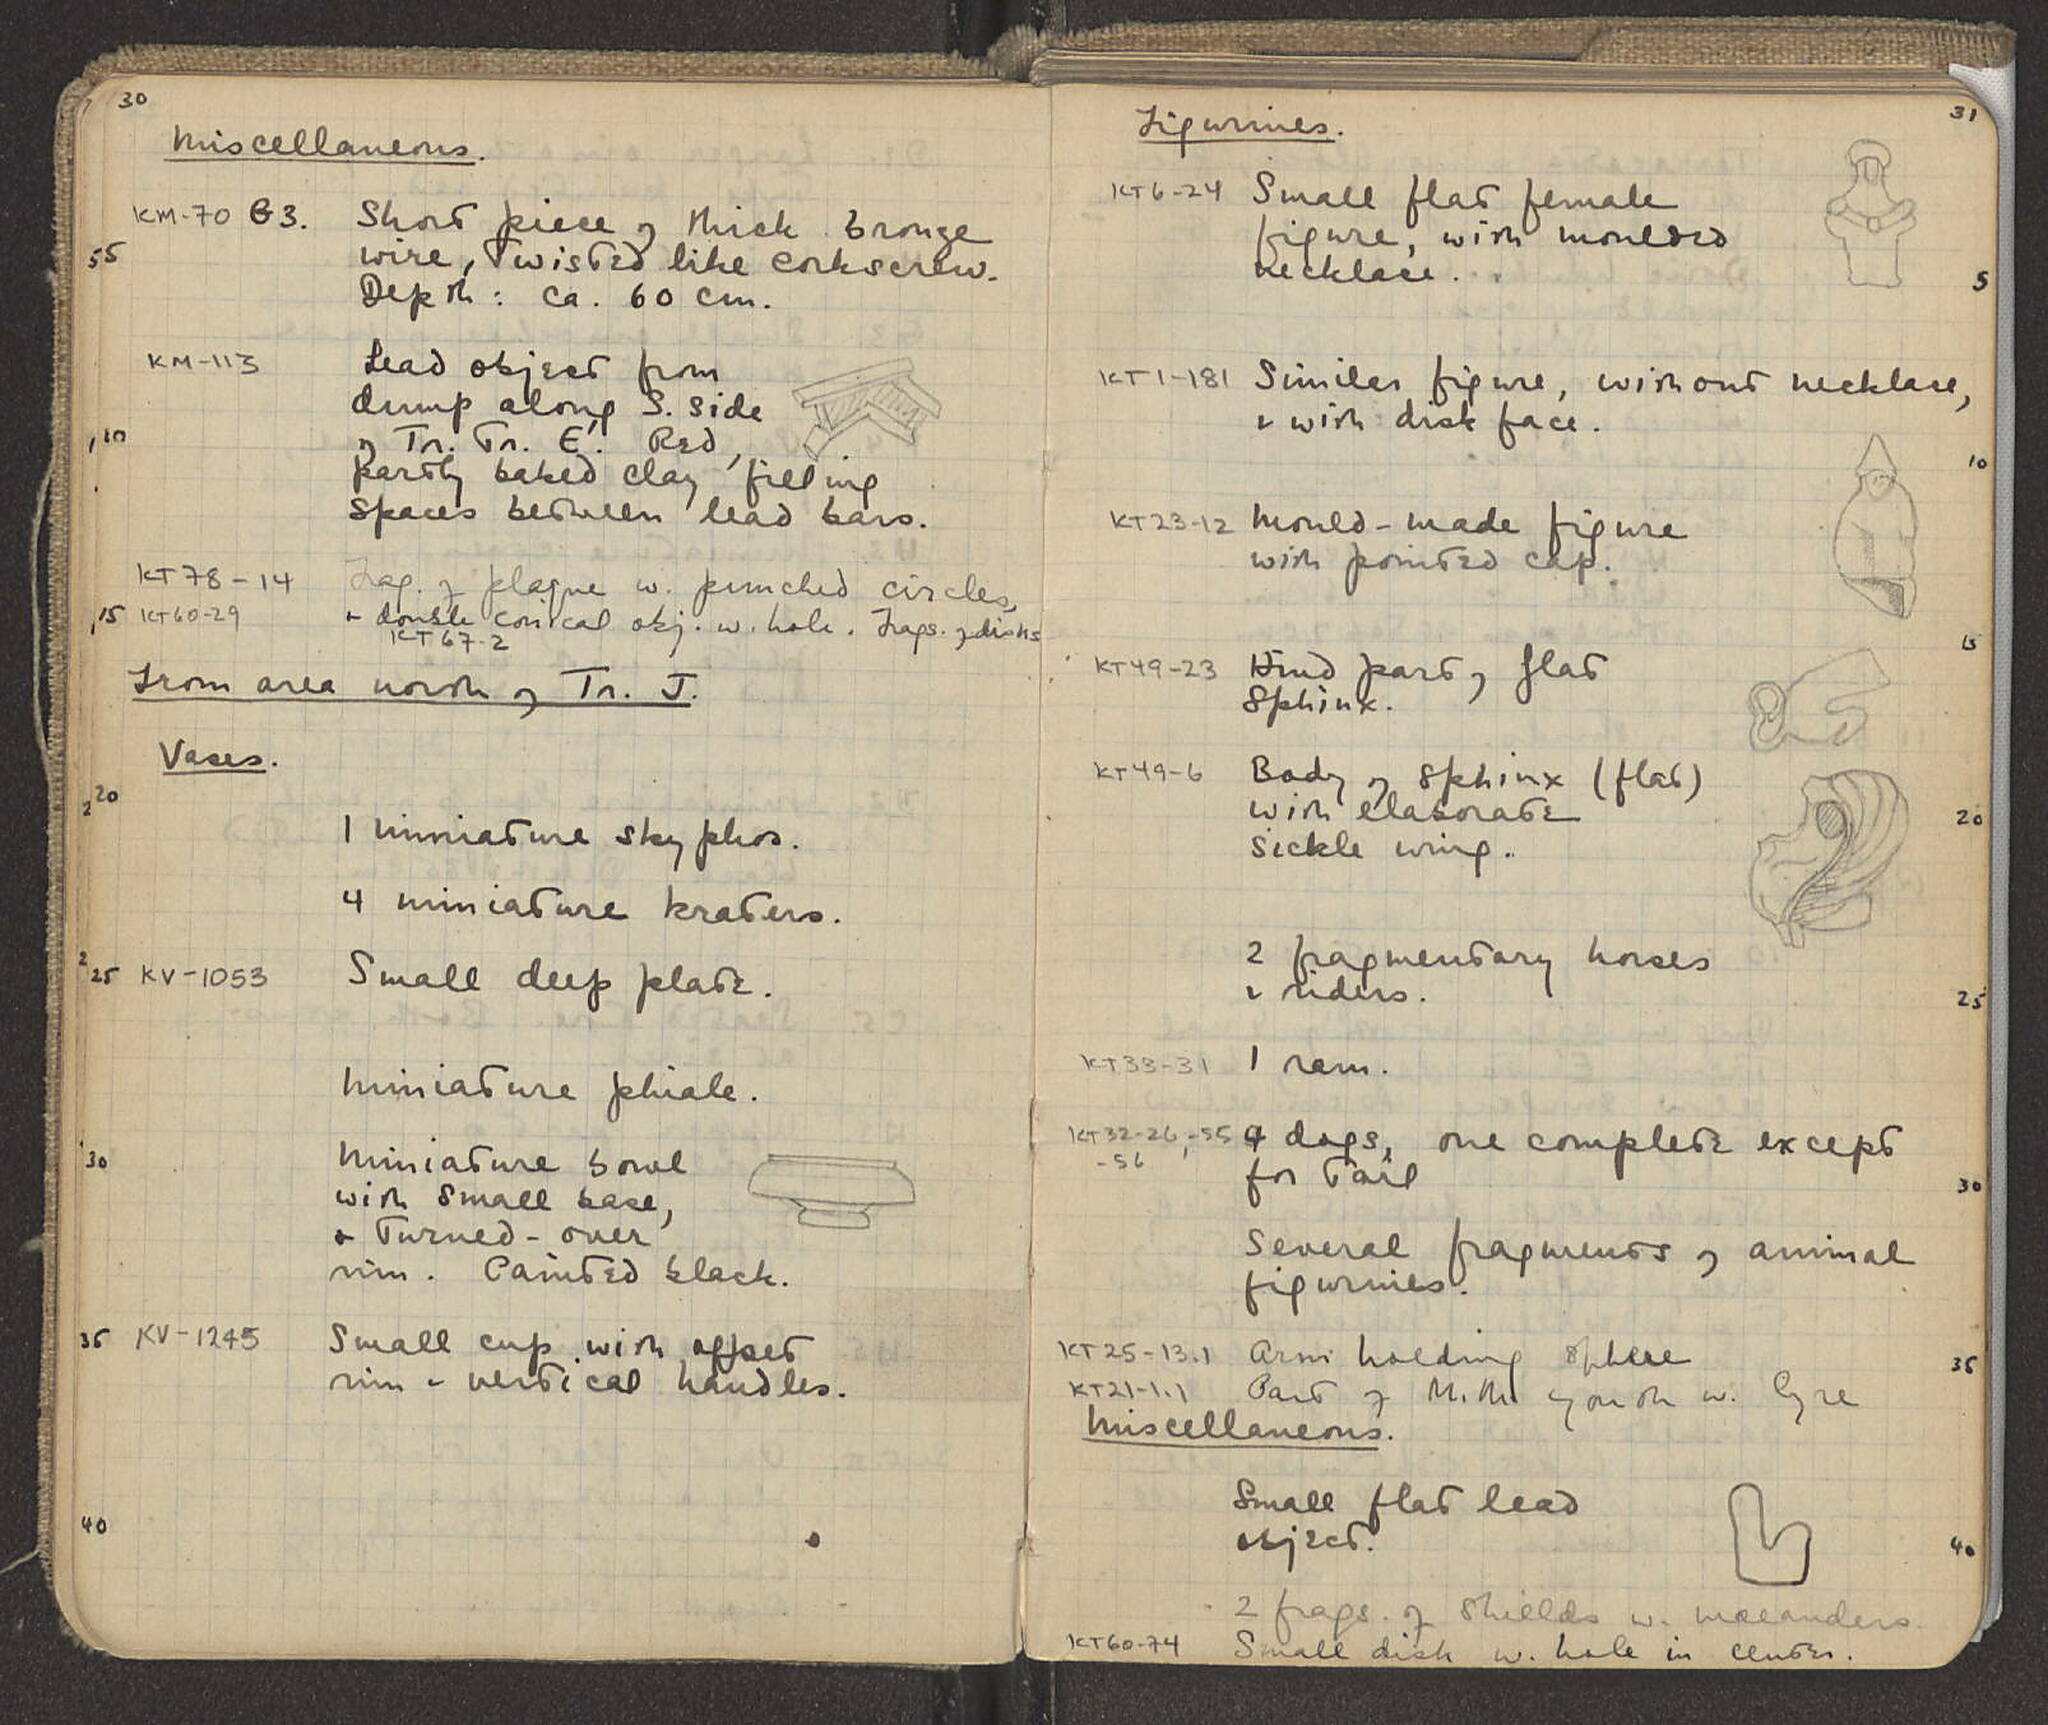 30
Miscellaneous.
KM-70 G3. Short piece of thick bronze
55 wire, twisted like corkscrew.
Depth: ca. 60 cm.
KM-113 Lead object from
dump along S. side
10 of Tr. Tr. E. Red,
partly baked clay filling
spaces between lead bars.
KT78-14 Frag. of plaque w. punched circles,
15 KT60-29 + double conical obj. w. hole. Frags. of disks
KT67-2
From area north of Tr. J.
Vases.
20
1 miniature skyphos.
4 miniature kraters.
25 KV-1053 Small deep plate.
Miniature phiale.
30 Miniature bowl
with small base,
+ turned-over
rim. Painted black.
35 KV-1245 Small cup with offset
rim + vertical handles.
40
31
Figurines.
KT6-24 Small flat female
figure, with moulded
necklace. 5
KT1-181 Similar figure, without necklace,
+ with disk face.
10
KT23-12 Mould-made figure
with pointed cap.
15
KT49-23 Hind part of flat
sphinx.
KT49-6 Body of sphinx (flat)
with elaborate 20
sickle wing.
2 fragmentary horses
+ riders. 25
KT33-31 1 ram.
KT32-26, -55 4 dogs, one complete except
-56 for tail 30
Several fragments of animal
figurines.
KT25-13.1 Arm holding sphere 35
KT21-1.1 Part of youth w. lyre
Miscellaneous.
Small flat lead
object. 40
2 frags. of shields w. maeanders
KT60-74 Small disk w. hole in center.